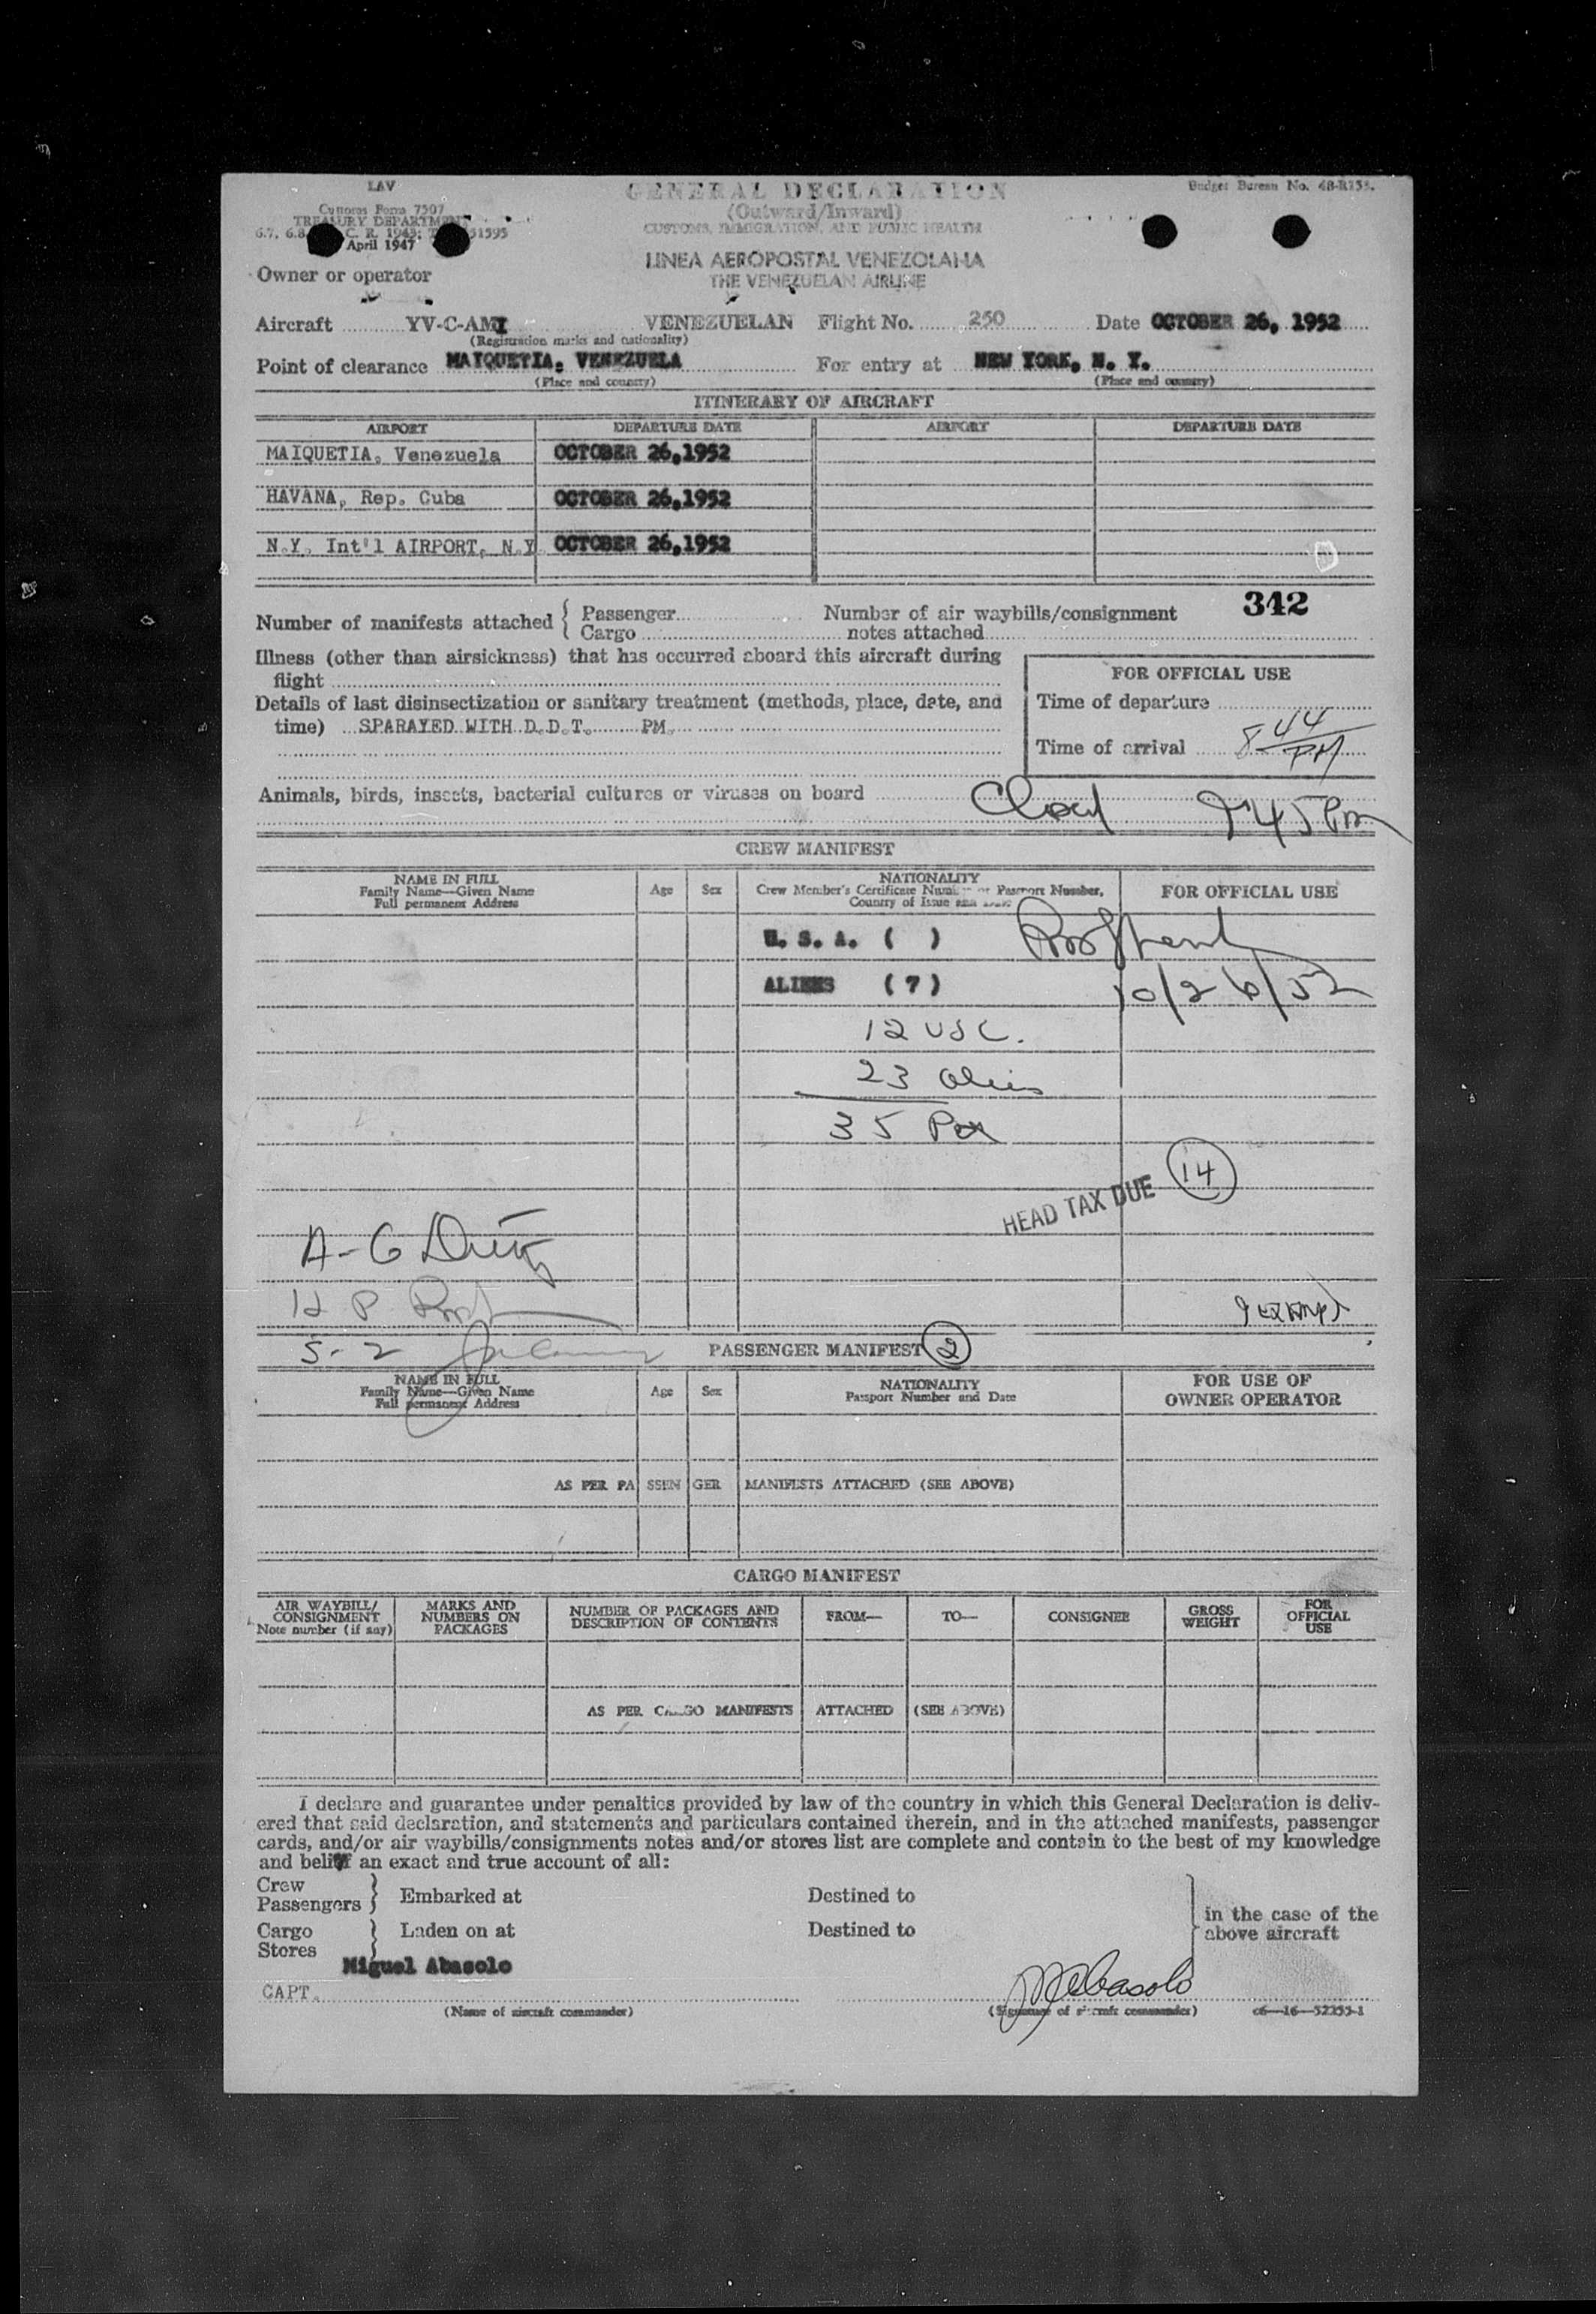 LAV
GENERAL DECLARATION
Budget Bureau No. 48-R155.
(Outward/Inward)
Customs Form 7507
TREASURY DEPARTMENT
CUSTOMS, IMMIGRATION, AND PUBLIC HEALTH
6.7, 6.8, C. R. 1943; T. 51595
April 1947
LINEA AEROPOSTAL VENEZOLANA
THE VENEZUELAN AIRLINE
Owner or operator
Aircraft YV-C-AMI VENEZUELAN Flight No. 250 Date OCTOBER 26, 1952
(Registration marks and nationality)
Point of clearance MAIQUETIA, VENEZUELA For entry at NEW YORK, N. Y.
(Place and country) (Place and country)
ITINERARY OF AIRCRAFT
AIRPORT DEPARTURE DATE AIRPORT DEPARTURE DATE
MAIQUETIA, Venezuela OCTOBER 26,1952
HAVANA, Rep. Cuba OCTOBER 26,1952
N.Y. Int'l AIRPORT, N.Y. OCTOBER 26,1952
342
Number of manifests attached { Passenger Number of air waybills/consignment
Cargo notes attached
Illness (other than airsickness) that has occurred aboard this aircraft during
flight
FOR OFFICIAL USE
Details of last disinsectization or sanitary treatment (methods, place, date, and
time) SPARAYED WITH D.D.T. PM.
Time of departure
Time of arrival 8 44 PM
Animals, birds, insects, bacterial cultures or viruses on board
945 Pm
CREW MANIFEST
NAME IN FULL
Family Name—Given Name
Full permanent Address
Age Sex
NATIONALITY
Crew Member's Certificate Number or Passport Number,
Country of Issue and Date
FOR OFFICIAL USE
U. S. A. ( )
ALIENS (7)
10/26/52
12 USC.
23 Aliens
35 Pax
HEAD TAX DUE 14
9 exempt
PASSENGER MANIFEST 2
S-2
NAME IN FULL
Family Name—Given Name
Full permanent Address
Age Sex
NATIONALITY
Passport Number and Date
FOR USE OF
OWNER OPERATOR
AS PER PASSENGER MANIFESTS ATTACHED (SEE ABOVE)
CARGO MANIFEST
AIR WAYBILL/
CONSIGNMENT
Note number (if any)
MARKS AND
NUMBERS ON
PACKAGES
NUMBER OF PACKAGES AND
DESCRIPTION OF CONTENTS
FROM— TO— CONSIGNEE
GROSS
WEIGHT
FOR
OFFICIAL
USE
AS PER CARGO MANIFESTS ATTACHED (SEE ABOVE)
I declare and guarantee under penalties provided by law of the country in which this General Declaration is deliv-
ered that said declaration, and statements and particulars contained therein, and in the attached manifests, passenger
cards, and/or air waybills/consignments notes and/or stores list are complete and contain to the best of my knowledge
and belief an exact and true account of all:
Crew
Passengers } Embarked at Destined to
in the case of the
above aircraft
Cargo
Stores } Laden on at Destined to
Miguel Abasolo
CAPT. MAbasolo
(Name of aircraft commander) (Signature of aircraft commander) c6—16—52255-1